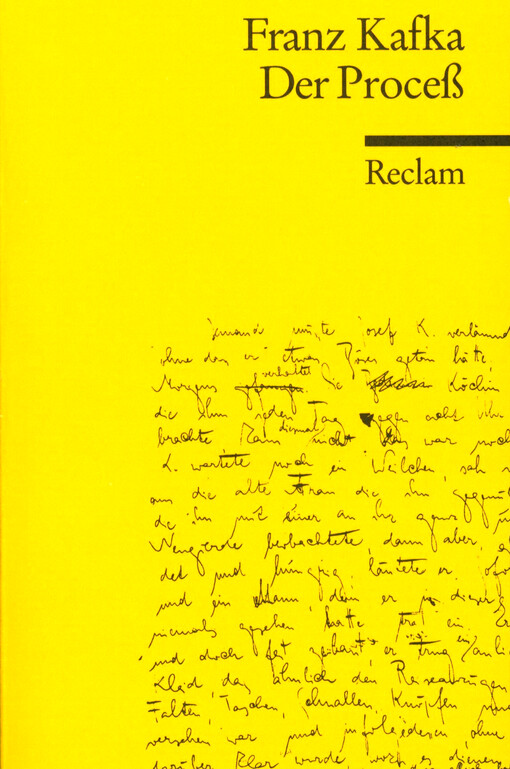 Franz Kafka
Der Proceß
Reclam
Jemand mußte Josef K. verläumd
ohne daß er etwas Böses getan hätte,
verhaftet
Morgens gefangen. Die Köchin
die ihm jeden Tag gegen acht Uhr
diesmal
brachte kam nicht. Das war noch
K. wartete noch ein Weilchen, sah v
aus die alte Frau die ihm gegenü
die ihn mit einer an ihr ganz un
Neugierde beobachtete, dann aber, g
det und hungrig, läutete er. Sofor
und ein Mann, den er in dieser
niemals gesehen hatte trat ein. Er
und doch fest gebaut, er trug ein anlie
Kleid, das ähnlich den Reiseanzügen
Falten, Taschen, Schnallen, Knöpfen und
versehen war und infolgedessen, ohne
darüber klar wurde, wozu es dienen